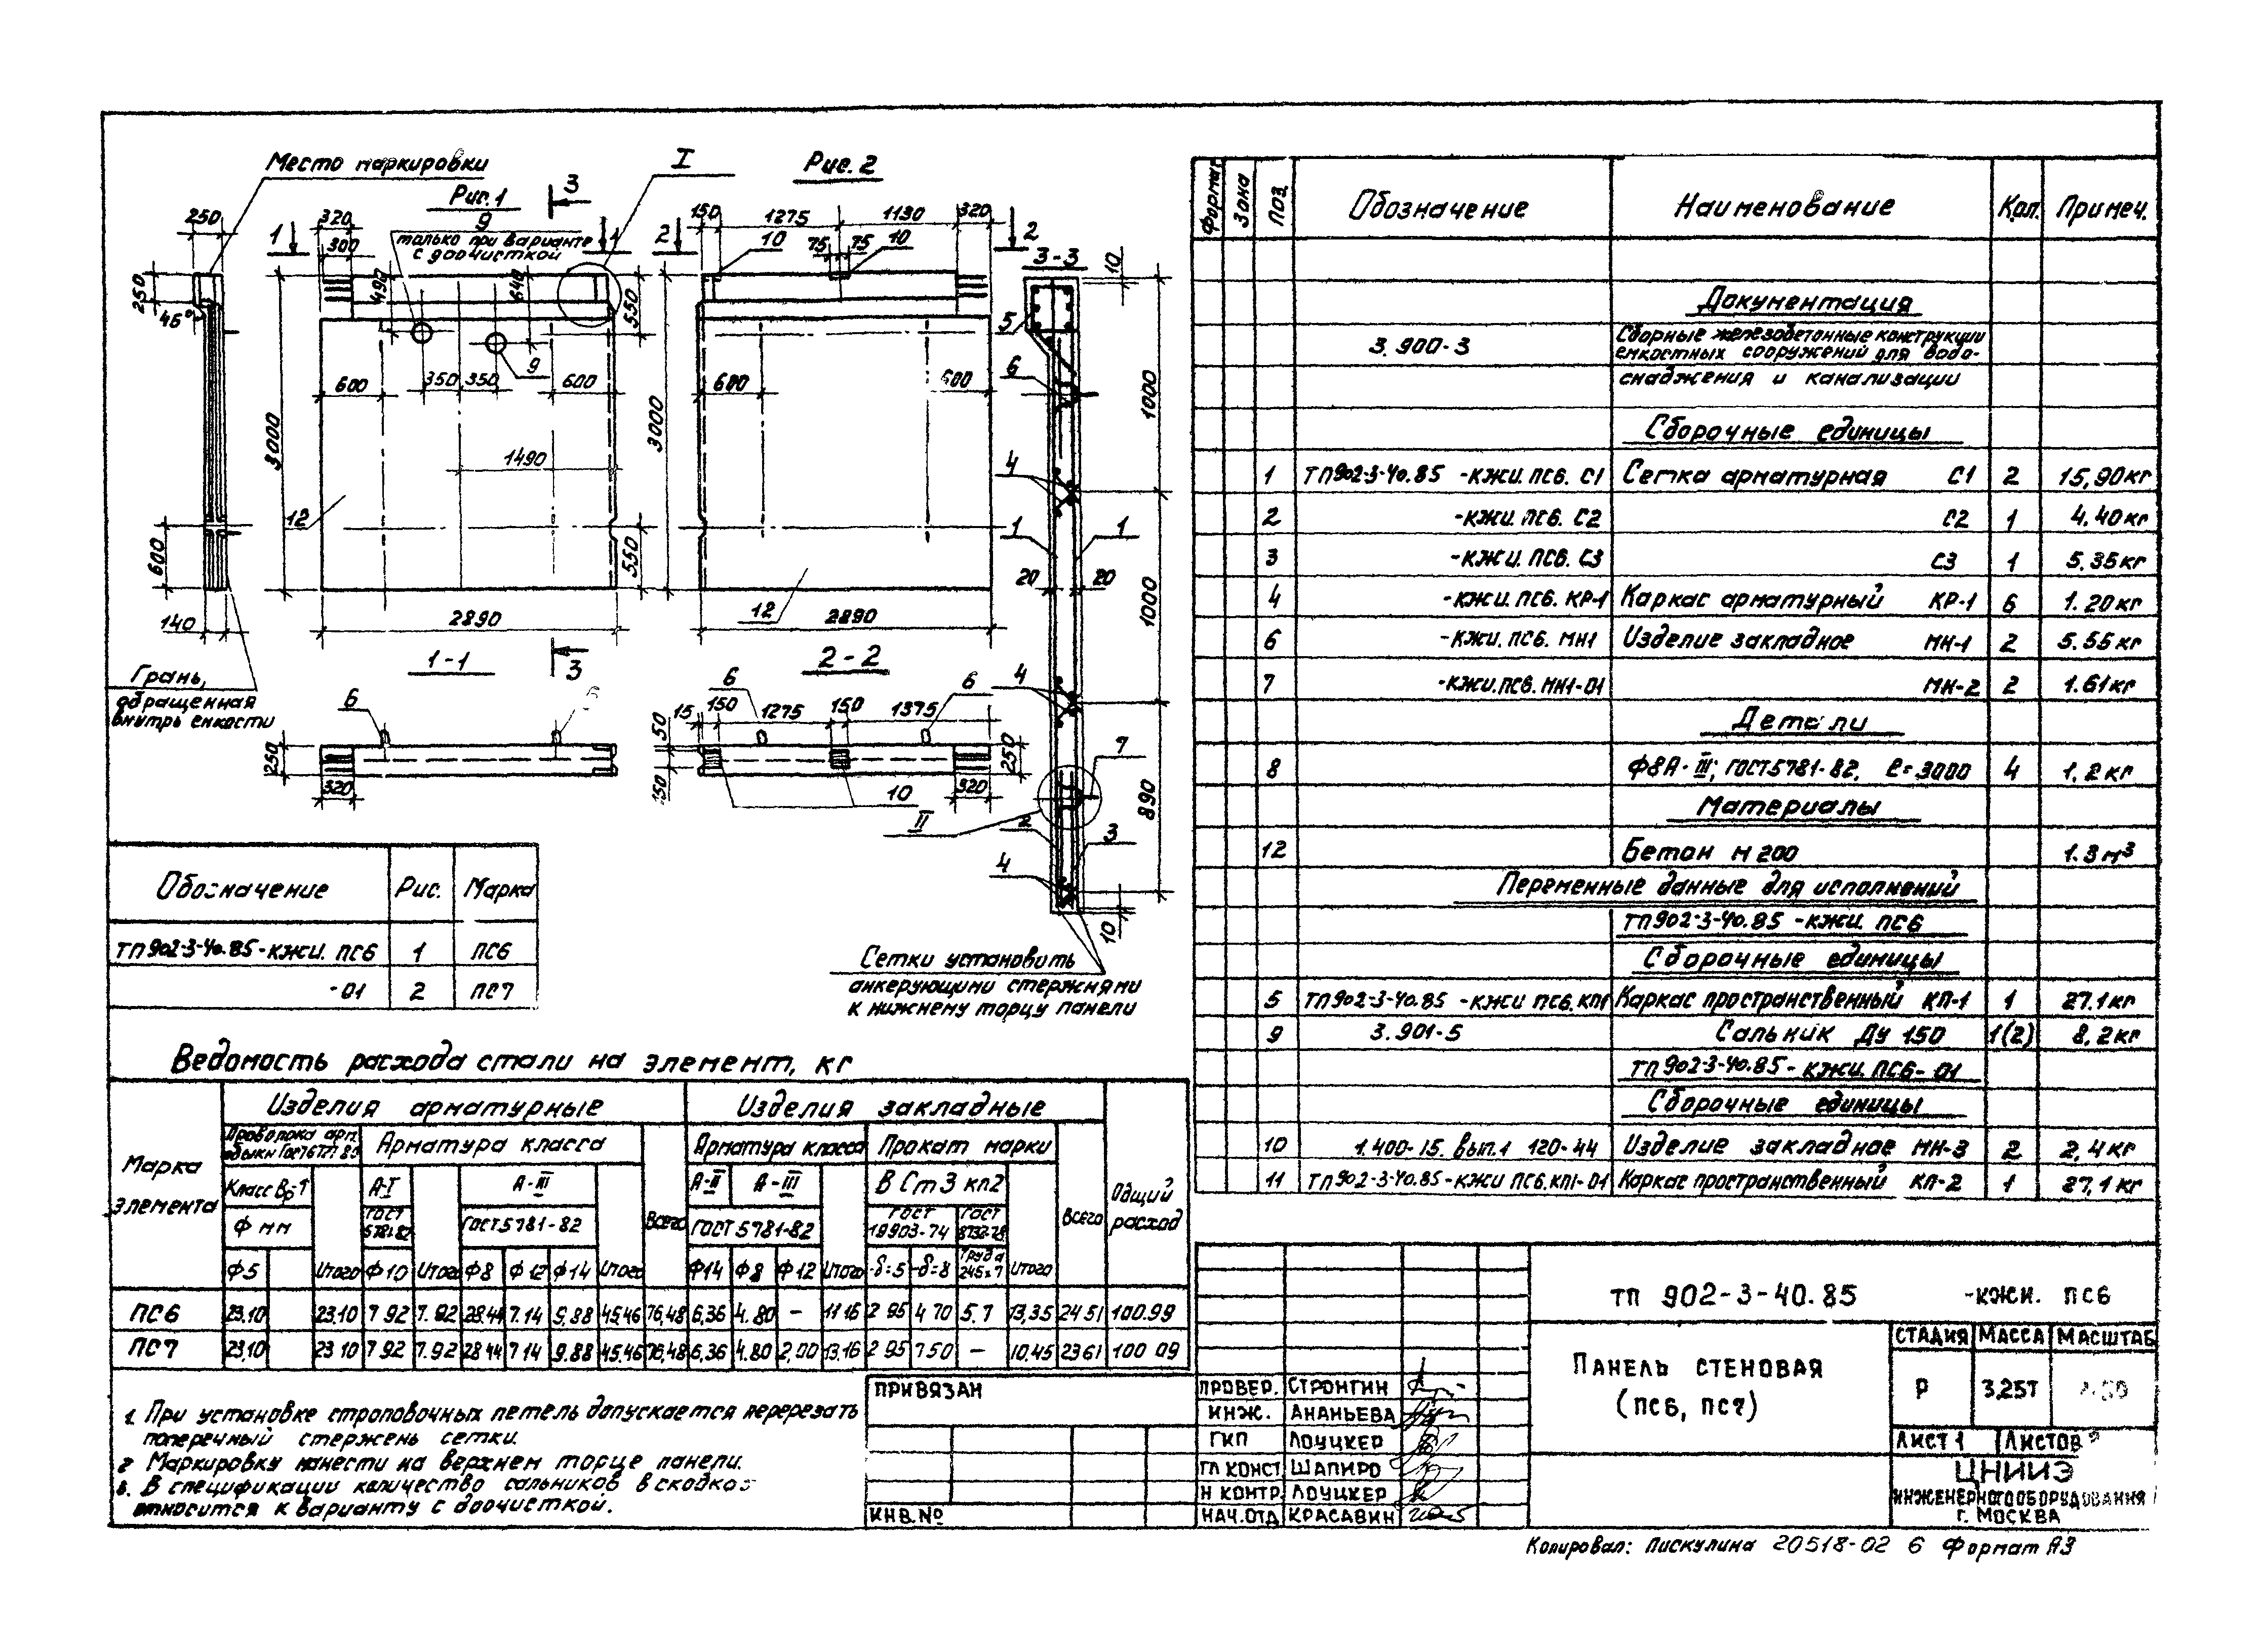 Место маркировки
Рис. 1
Рис. 2
I
3
9
только при варианте
с доочисткой
250
320
300
1
1
2
2
150
1275
1130
320
75
75
10
10
3-3
10
250
45°
490
640
550
3000
3000
600
350
350
600
9
600
600
1490
12
12
550
600
140
2890
2890
5
6
4
1
1
20
20
4
7
2
3
4
1000
1000
890
10
II
1-1
3
2-2
Грань,
обращенная
внутрь емкости
6
6
250
320
6
6
15
150
1275
150
1375
50
150
250
320
10
Сетки установить
анкерующими стержнями
к нижнему торцу панели
Обозначение Рис. Марка
ТП902-3-40.85-КЖИ. ПС6 1 ПС6
-01 2 ПС7
Ведомость расхода стали на элемент, кг
Марка элемента
Изделия арматурные
Изделия закладные
Общий расход
Проволока арм.
Арматура класса
Всего
Арматура класса
Прокат марки
Всего
Класс Вр-I
А-I
А-III
А-II
А-III
В Ст3 кп2
ф мм
ГОСТ 5781-82
ГОСТ 5781-82
ГОСТ 5781-82
ГОСТ 19903-74
ГОСТ
Ф5 Итого Ф10 Итого Ф8 Ф12 Ф14 Итого Ф14 Ф8 Ф12 Итого -δ=5 -δ=8 Труба 245×7 Итого
ПС6 23,10 23,10 7 92 7.92 28.44 7.14 9,88 45,46 76,48 6,36 4.80 — 11 16 2 95 4 70 5.7 13,35 24 51 100.99
ПС7 23,10 23 10 7 92 7.92 28 44 7 14 9.88 45.46 76,48 6,36 4.80 2,00 13.16 2 95 7 50 — 10,45 23 61 100 09
1. При установке строповочных петель допускается перерезать
поперечный стержень сетки.
2 Маркировку нанести на верхнем торце панели.
3. В спецификации количество сальников в скобках
относится к варианту с доочисткой.
Формат Зона Поз. Обозначение Наименование Кол. Примеч.
Документация
3.900-3 Сборные железобетонные конструкции
емкостных сооружений для водо-
снабжения и канализации
Сборочные единицы
1 ТП902-3-40.85 -КЖИ. ПС6. С1 Сетка арматурная С1 2 15,90кг
2 -КЖИ. ПС6. С2 С2 1 4.40кг
3 -КЖИ. ПС6. С3 С3 1 5.35кг
4 -КЖИ. ПС6. КР-1 Каркас арматурный КР-1 6 1.20кг
6 -КЖИ. ПС6. МН1 Изделие закладное МН-1 2 5.55кг
7 -КЖИ.ПС6. МН1-01 МН-2 2 1.61кг
Детали
8 Ф8А-III; ГОСТ5781-82, ℓ=3000 4 1,2кг
Материалы
12 Бетон М200 1.3м³
Переменные данные для исполнений
ТП902-3-40.85 -КЖИ. ПС6
Сборочные единицы
5 ТП902-3-40.85 -КЖИ ПС6.КП1 Каркас пространственный КП-1 1 27.1кг
9 3.901-5 Сальник Ду 150 1(2) 8,2кг
ТП902-3-40.85-КЖИ.ПС6-01
Сборочные единицы
10 1.400-15. вып.1 120-44 Изделие закладное МН-3 2 2,4кг
11 ТП902-3-40.85-КЖИ ПС6.КП1-01 Каркас пространственный КП-2 1 27,1кг
ТП 902-3-40.85 -КЖИ. ПС6
ПАНЕЛЬ СТЕНОВАЯ
(ПС6, ПС7)
СТАДИЯ МАССА МАСШТАБ
Р 3,25Т
ЛИСТ 1 ЛИСТОВ
ЦНИИЭ
ИНЖЕНЕРНОГО ОБОРУДОВАНИЯ
Г. МОСКВА
ПРОВЕР. СТРОНГИН
ИНЖ. АНАНЬЕВА
ГИП ЛОУЦКЕР
ГЛ КОНСТ ШАПИРО
Н КОНТР. ЛОУЦКЕР
НАЧ.ОТД КРАСАВИН
ПРИВЯЗАН
ИНВ.№
Копировал: Пискулина 20518-02 6 Формат А3